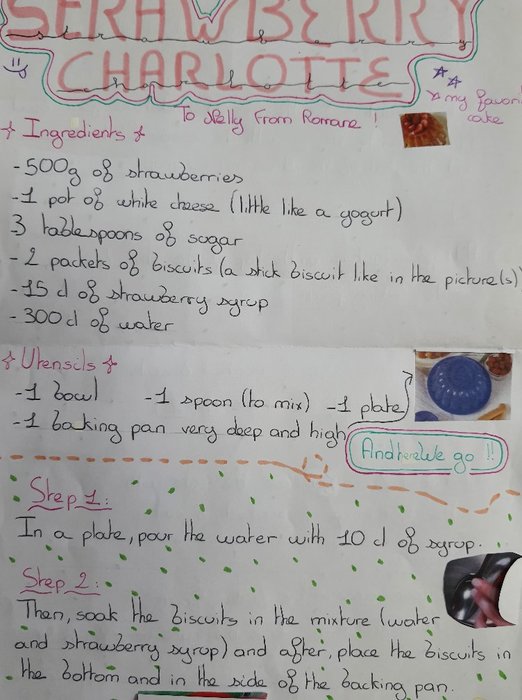 STRAWBERRY
strawberry
CHARLOTTE
charlotte
my favorite
cake
To Nelly From Romane !
Ingredients
- 500g of strawberries
- 1 pot of white cheese (little like a yogurt)
3 tablespoons of sugar
- 2 packets of biscuits (a stick biscuit like in the picture(s)
- 15 cl of strawberry syrup
- 300 cl of water
Utensils
- 1 bowl - 1 spoon (to mix) - 1 plate
- 1 baking pan very deep and high
And here We go !!
Step 1:
In a plate, pour the water with 10 cl of syrup.
Step 2:
Then, soak the biscuits in the mixture (water
and strawberry syrup) and after, place the biscuits in
the bottom and in the side of the backing pan.